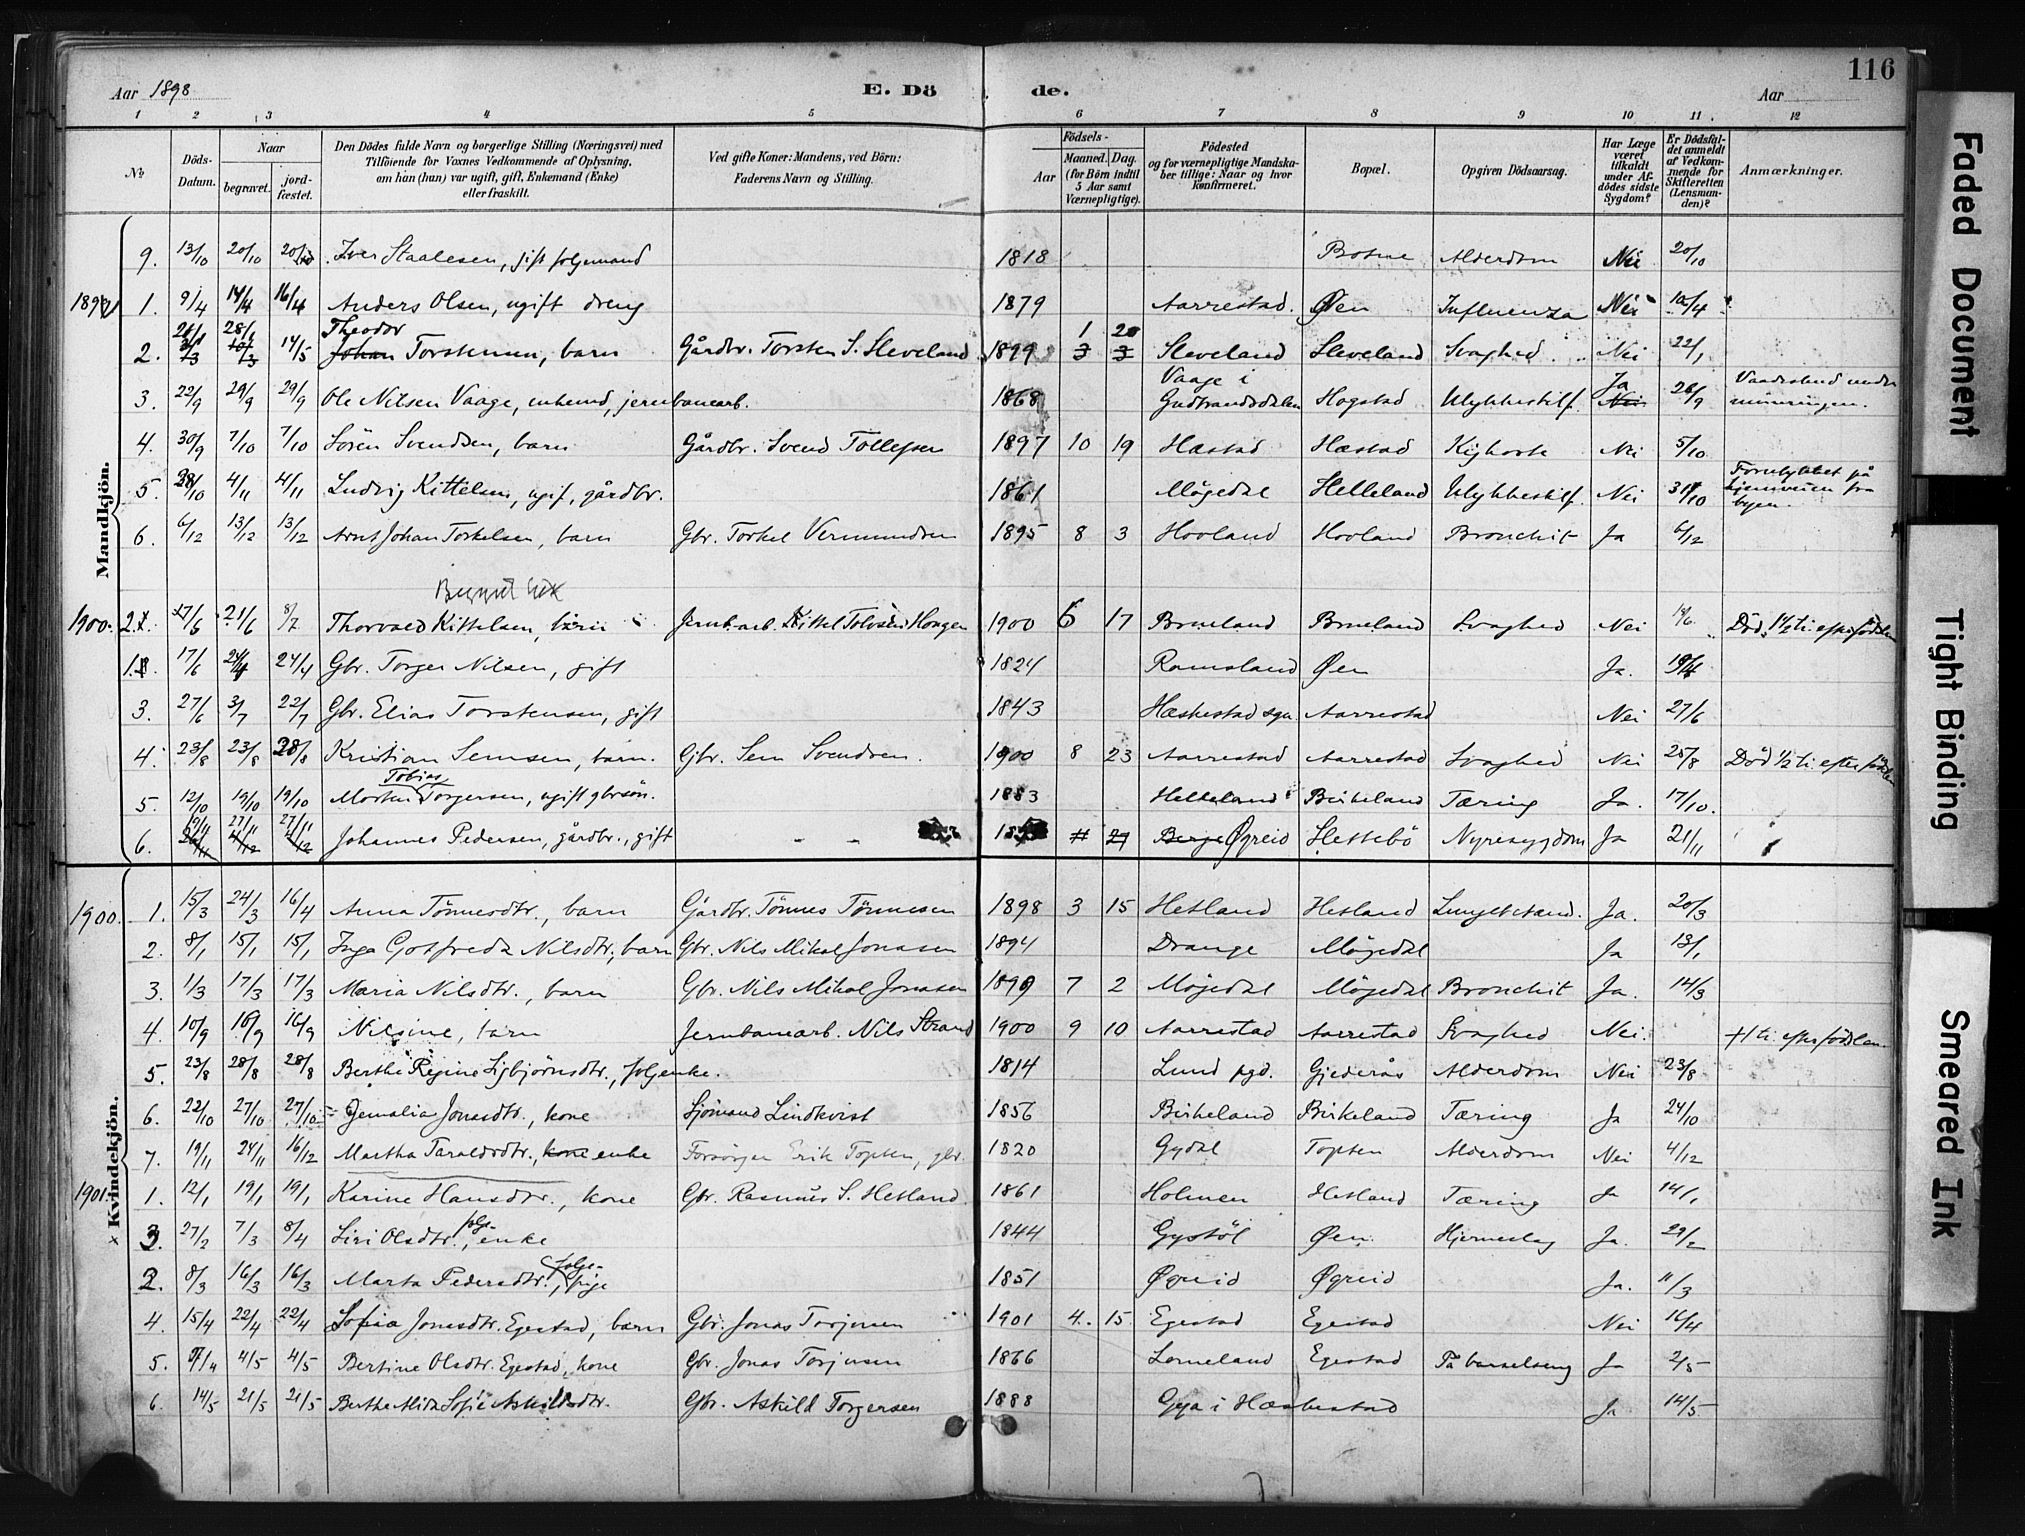 116
Aar 1898
E. Dö de.
Aar
1 2 3 4 5 6 7 8 9 10 11 12
№
Döds-Datum.
Naar
begravet.
jord-fæstet.
Den Dödes fulde Navn og borgerlige Stilling (Næringsvei) med Tilföiende for Voxnes Vedkommende af Oplysning, om han (hun) var ugift, gift, Enkemand (Enke) eller fraskilt.
Ved gifte Koner: Mandens, ved Börn: Faderens Navn og Stilling.
Födsels-
Aar
Maaned.
Dag.
(for Börn indtil 5 Aar samt Værnepligtige).
Födested og for værnepligtige Mandskaber tillige: Naar og hvor konfirmeret.
Bopæl.
Opgiven Dödsaarsag.
Har Læge været tilkaldt under Afdödes sidste Sygdom?
Er Dödsfaldet anmeldt af Vedkommende for Skifteretten (Lensmanden)?
Anmærkninger.
Mandkjön.
9. 13/10 20/10 20/10 Iver Staalesen, gift folgemand 1818 Alderdom Nei 20/10
1. 9/4 14/4 16/4 Anders Olsen, ugift dreng 1879 Aarrestad. Øen Influenza Nei
2. 28/1 14/5 Theodor Johan Torstensen, barn Gårdbr. Torsten S. Sleveland 1899 1 20 Sleveland Sleveland Svaghed. Nei 22/1
3. 22/9 29/9 29/9 Ole Nilsen Vaage, enkemd, jernbanearb. 1868 Vaage i Gudbrandsdalen Hogstad Ulykkestilf. Ja Nei 26/9 Vaadeskud under mineringen.
4. 30/9 7/10 7/10 Sören Svendsen, barn Gårdbr. Svend Tollefsen 1897 10 19 Hæstad Hæstad Kighoste Nei 5/10
5. 28/10 4/11 4/11 Ludvig Kittelsen, ugif, gårdbr. 1861 Mögedal Helleland Ulykkestilf. Nei 31/10 Forulykket på hjemveien fra byen.
6. 6/12 13/12 13/12 Arnt Johan Torkelsen, barn Gbr. Torkel Vermundsen 1895 8 3 Hovland Hovland Bronchit Ja 6/12
1900. 2. 17/6 21/6 8/7 Thorvald Kittelsen, barn Jernb.arb. Kittel Tolvsen Haugen 1900 6 17 Brueland Brueland Svaghed Nei Död 1½ ti. efter födslen
1. 17/6 24/4 Gbr. Torger Nilsen, gift 1824 Ramsland Øen Ja.
3. 27/6 3/7 22/7 Gbr. Elias Torstensen, gift 1843 Hæskestad sgn. Aarrestad Nei 27/6
4. 23/8 23/8 28/8 Kristian Semsen, barn. Gbr. Sem Svendsen. 1900 8 23 Aarrestad Aarrestad Svaghed Nei 25/8 Död ½ ti. efter födslen
5. 12/10 19/10 19/10 Morten Tobias Torgersen, ugift gbrsön. 1883 Helleland Birkeland Tæring Ja. 17/10.
6. 27/11 27/11 Johannes Pedersen, gårdbr., gift Øgreid Hettebö Nyresygdom Ja 21/11
Kvindekjön.
1900. 1. 15/3 24/3 16/4 Anna Tönnesdtr., barn Gårdbr. Tönnes Tönnesen 1898 3 15 Hetland Hetland Lungebetænd. Ja. 20/3
2. 8/1 15/1 15/1 Inga Gotfreda Nilsdtr., barn Gbr. Nils Mikal Jonasen 1894 Drange Mögedal Ja 13/1
3. 1/3 17/3 17/3 Maria Nilsdtr., barn Gbr. Nils Mikal Jonasen 1899 7 2 Mögedal Mögedal Bronchit Ja. 14/3
4. 10/9 16/9 16/9 Nilsine, barn Jernbanearb. Nils Strand 1900 9 10 Aarrestad Aarrestad Svaghed Nei. + 1 ti. efter födslen.
5. 23/8 28/8 28/8 Berthe Regine Sigbjörnsdtr., folgenke. 1814 Lund pgd. Gjederås Alderdom Nei 23/8
6. 22/10 27/10 27/10 Jemalia Jonasdtr., kone Sjömand Lindkvist 1856 Birkeland Birkeland Tæring Ja 24/10
7. 19/11 24/11 16/12 Martha Taraldsdtr., kone enke Forsörger Erik Topten, gbr. 1820 Gydal Topten Alderdom Nei 4/12
1901. 1. 12/1 19/1 19/1 Karine Hansdtr., kone Gbr. Rasmus S. Hetland. 1861 Holmen Hetland Tæring Ja 14/1
3. 27/2 7/3 8/4 Siri Olsdtr., folg- enke 1844 Gystöl Øen Hjerneslag Ja.
2. 8/3 16/3 16/3 Marta Pedersdtr., folge- pige 1851 Øgreid Øgreid Ja. 11/3
4. 15/4 22/4 22/4 Sofia Jonasdtr. Egestad, barn Gbr. Jonas Torjusen 1901 4. 15 Egestad Egestad Nei 16/4
5. 4/5 4/5 Bertine Olsdtr. Egestad, kone Gbr. Jonas Torjusen 1866 Lomeland Egestad På barselseng Ja 2/5
6. 14/5 21/5 21/5 Berthe Alida Sofie Askildsdtr. Gbr. Askild Torgersen 1888 Gya i Hæskestad Ja 14/5
Faded Document
Tight Binding
Smeared Ink